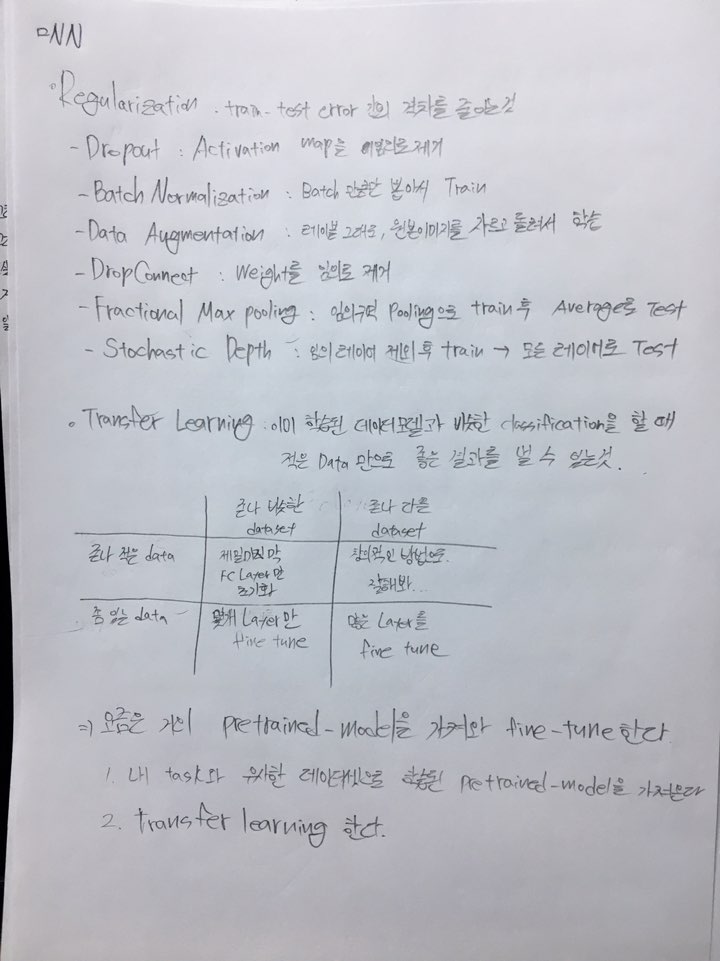 □NN
◦Regularization . train-test error 간의 격차를 줄이는것
- Dropout : Activation map을 제거
- Batch Normalization : Batch 만큼만 뽑아서 Train
- Data Augmentation : 레이블 그대로, 원본이미지를 자르고 돌려서 학습
- DropConnect : Weight를 임의로 제거
- Fractional Max pooling : 임의구역 Pooling으로 train 후 Average로 Test
- Stochastic Depth : 임의 레이어 제외 후 train → 모든 레이어로 Test
◦ Transfer Learning . 이미 학습된 데이터모델과 비슷한 classification을 할 때
적은 Data 만으로 좋은 결과를 낼 수 있는것.
존나 비슷한 dataset
존나 다른 dataset
존나 적은 data
제일마지막
FC Layer만
초기화
창의적인 방법으로.
잘해봐...
좀 있는 data
몇개 Layer만
fine tune
많은 Layer를
fine tune
⇒ 요즘은 거의 pretrained-model을 가져와 fine-tune 한다
1. 내 task와 유사한 데이터셋으로 학습된 pretrained-model을 가져온다
2. transfer learning 한다.